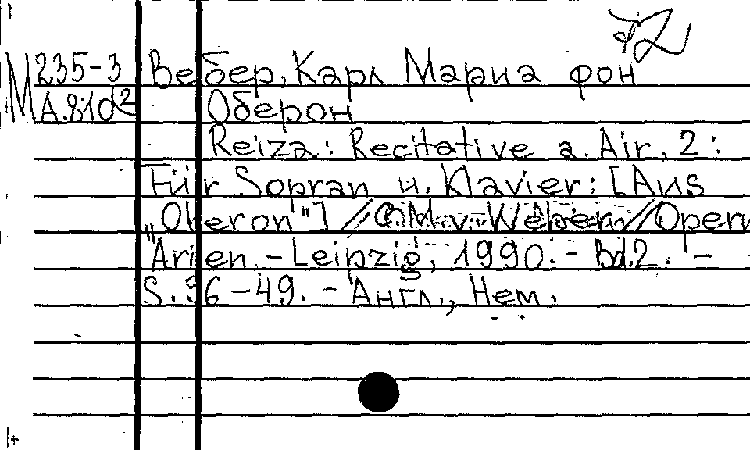 М 235-3 Вебер, Карл Мариа фон
А.810² Оберон
Reiza: Recitative a. Air, 2:
Für Sopran u. Klavier: [Aus
"Oberon"] // C.M.v. Weber // Opern
Arien. - Leipzig, 1990. - Bd.2. -
S.36-49. - Англ., Нем.